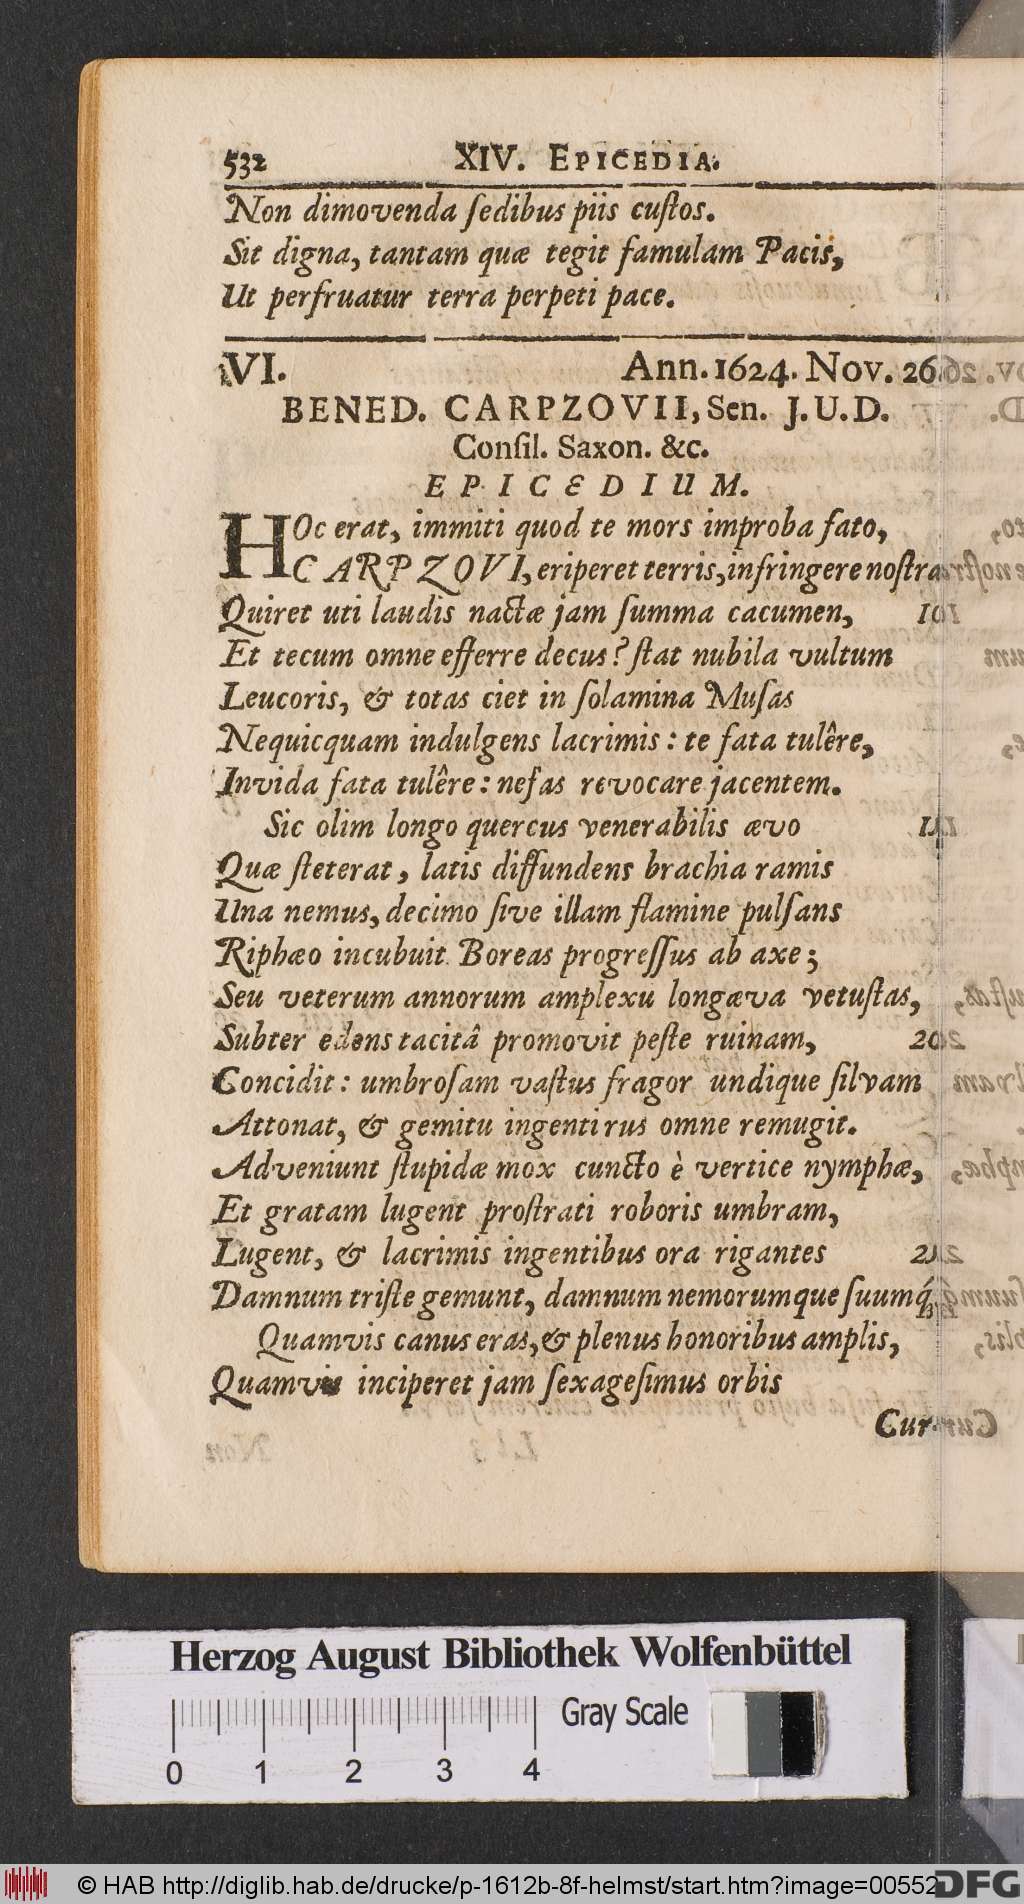 532 XIV. EPICEDIA.
Non dimovenda ſedibus piis cuſtos.
Sit digna, tantam quæ tegit famulam Pacis,
Ut perfruatur terra perpeti pace.
VI. Ann. 1624. Nov. 26.
BENED. CARPZOVII, Sen. J. U. D.
Conſil. Saxon. &c.
EPICEDIUM.
HOc erat, immiti quod te mors improba fato,
CARPZOVI, eriperet terris, infringere noſtra
Quiret uti laudis nactæ jam ſumma cacumen,
Et tecum omne efferre decus? ſtat nubila vultum
Leucoris, & totas ciet in ſolamina Muſas
Nequicquam indulgens lacrimis: te fata tulêre,
Invida fata tulêre: nefas revocare jacentem.
Sic olim longo quercus venerabilis ævo
Quæ ſteterat, latis diffundens brachia ramis
Una nemus, decimo ſive illam flamine pulſans
Riphæo incubuit Boreas progreſſus ab axe;
Seu veterum annorum amplexu longæva vetuſtas,
Subter edens tacitâ promovit peſte ruinam,
Concidit: umbroſam vaſtus fragor undique ſilvam
Attonat, & gemitu ingenti rus omne remugit.
Adveniunt ſtupidæ mox cuncto è vertice nymphæ,
Et gratam lugent proſtrati roboris umbram,
Lugent, & lacrimis ingentibus ora rigantes
Damnum triſte gemunt, damnum nemorumque ſuumq́;
Quamvis canus eras, & plenus honoribus amplis,
Quamvis inciperet jam ſexageſimus orbis
Cur-
Herzog August Bibliothek Wolfenbüttel
Gray Scale
0 1 2 3 4
© HAB http://diglib.hab.de/drucke/p-1612b-8f-helmst/start.htm?image=00552
DFG